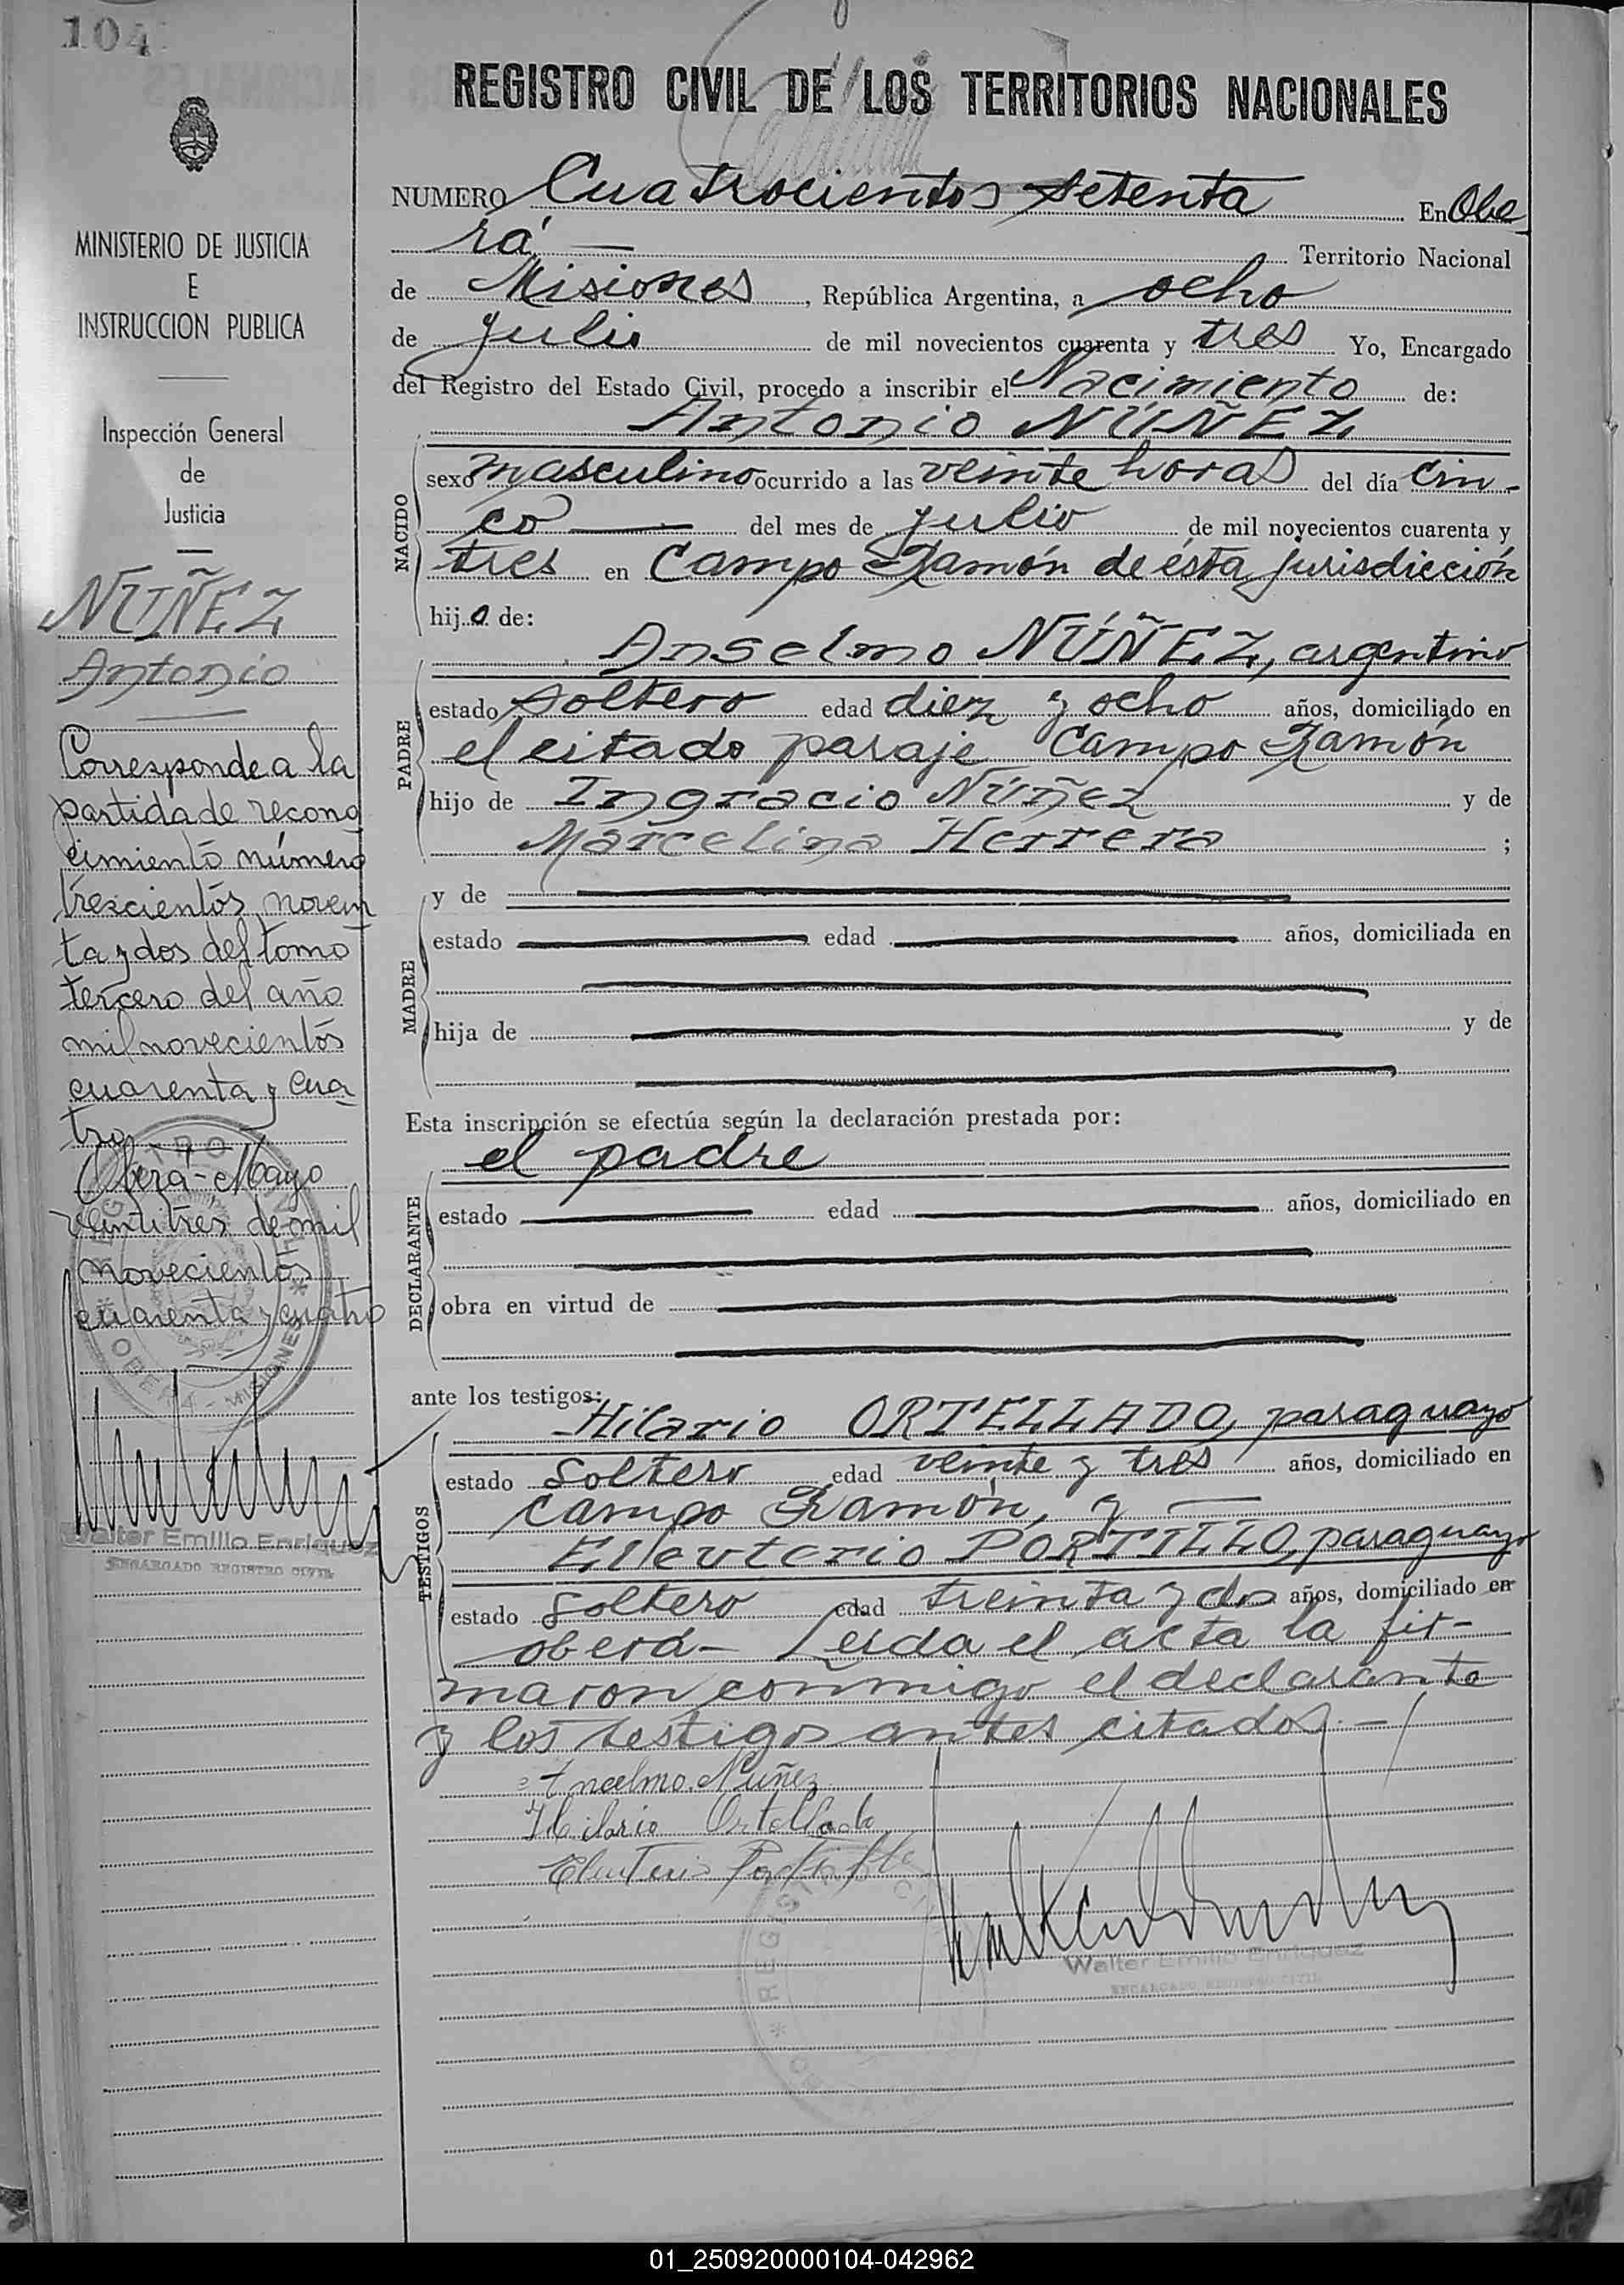 104
REGISTRO CIVIL DE LOS TERRITORIOS NACIONALES
MINISTERIO DE JUSTICIA
E
INSTRUCCION PUBLICA
Inspección General
de
Justicia
NUÑEZ
Antonio
Corresponde a la
partida de recono
cimiento número
trescientos noven
ta y dos del tomo
tercero del año
mil novecientos
cuarenta y cua
tro
Oberá - Mayo
veintitres de mil
novecientos
cuarenta y cuatro
OBERÁ - MISIONES
Walter Emilio Enriquez
ENCARGADO REGISTRO CIVIL
NUMERO Cuatrocientos setenta En Obe
rá — Territorio Nacional
de Misiones, República Argentina, a ocho
de julio de mil novecientos cuarenta y tres Yo, Encargado
del Registro del Estado Civil, procedo a inscribir el Nacimiento de:
Antonio NÚÑEZ
NACIDO
sexo masculino ocurrido a las veinte horas del día cin-
co — del mes de julio de mil novecientos cuarenta y
tres en Campo Ramón de ésta jurisdicción
hijo de:
Anselmo NÚÑEZ, argentino
PADRE
estado soltero edad diez y ocho años, domiciliado en
el citado paraje Campo Ramón
hijo de Ingracio Núñez y de
Marcelina Herrera ;
y de
MADRE
estado edad años, domiciliada en
hija de y de
Esta inscripción se efectúa según la declaración prestada por:
el padre
DECLARANTE
estado edad años, domiciliado en
obra en virtud de
ante los testigos:
Hilario ORTELLADO, paraguayo
TESTIGOS
estado soltero edad veinte y tres años, domiciliado en
campo Ramón, y —
Eleuterio PORTILLO, paraguayo
estado soltero edad treinta y dos años, domiciliado en
oberá - Leida el acta la fir-
maron conmigo el declarante
y los testigos antes citados. -
Ancelmo Nuñez
Hilario Ortellado
Eleuterio Portillo
Walter Emilio Enriquez
ENCARGADO REGISTRO CIVIL
01_250920000104-042962